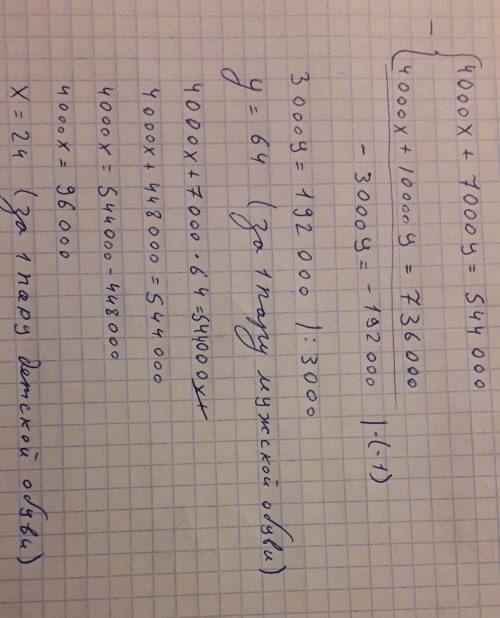 - { 4000x + 7000y = 544 000
4000x + 10000y = 736000
- 3000y = - 192 000 | · (-1)
3000y = 192 000 | : 3000
y = 64 (за 1 пару мужской обуви)
4000x + 7000 · 64 = 544000
4000x + 448 000 = 544 000
4000x = 544000 - 448000
4000x = 96 000
x = 24 (за 1 пару детской обуви)